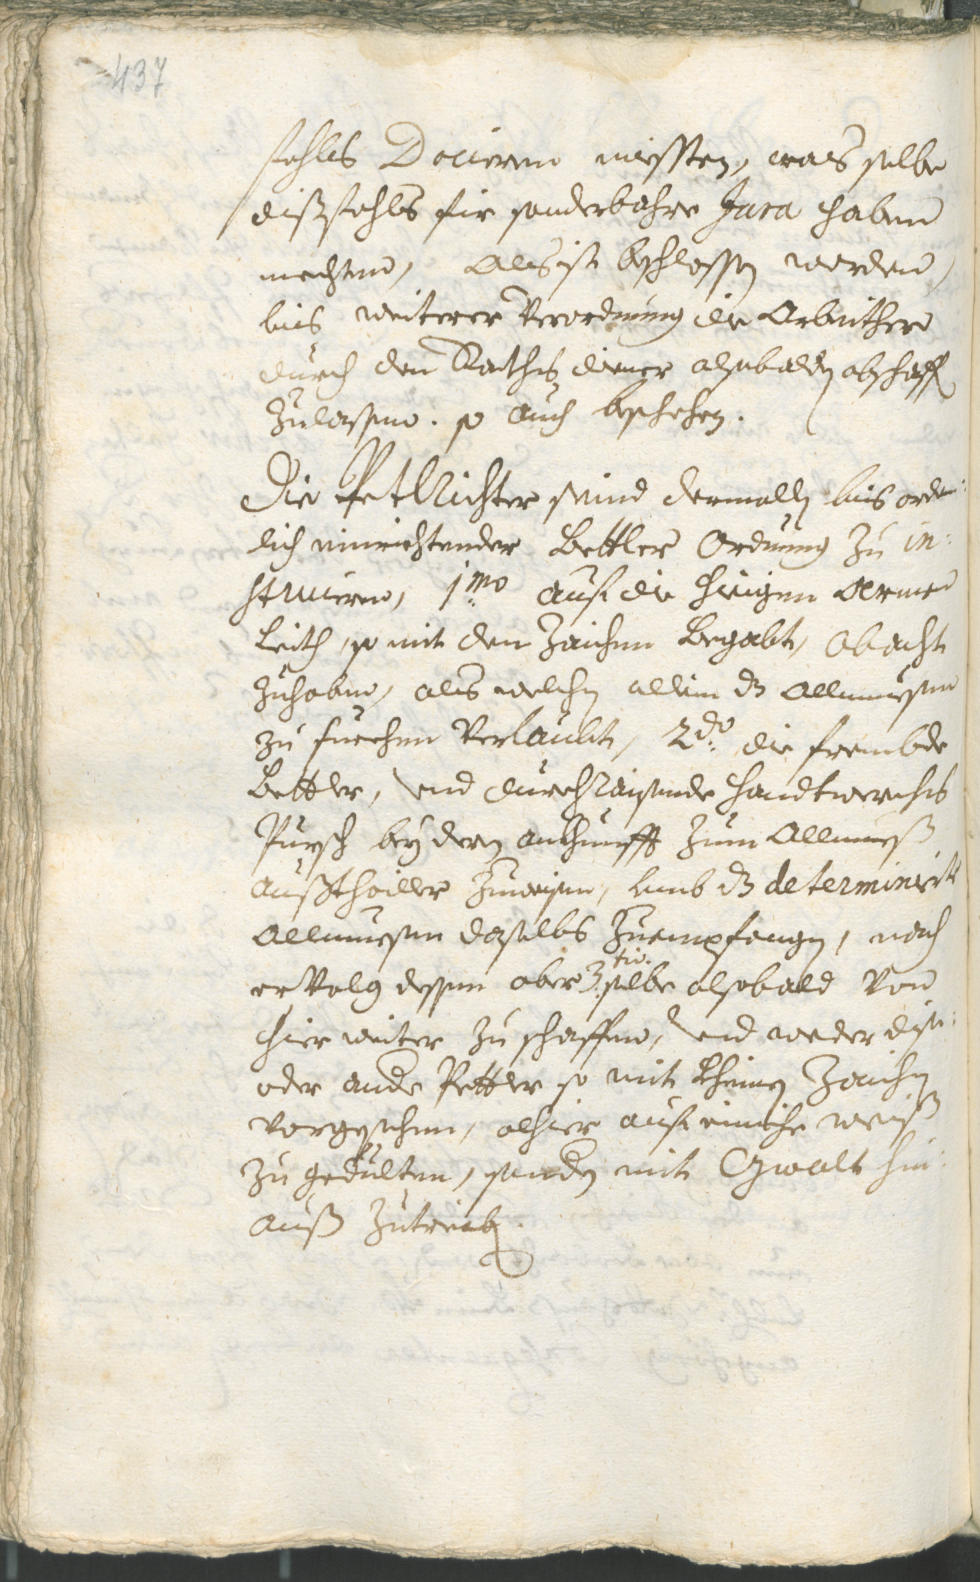 437
fahls Docieren miessten, was selbe
dißfahls für sonderbahre Jura haben
mechten, Als ist beschlossen worden,
bis weiterer Verordnung die Arbeither
durch den Rathsdiener alsobaldten abschaffen
zulassen. so auch beschehen.
Die Petlrichter seind dermalln bis orden:
lich einrichtender Bettler Ordnung zu in:
struieren, 1.mo auf die hiesigen Armen
Leith, so mit dem Zaichen Begabt, Obacht
zuhaben, als welchen allein dz Allmuesen
zu suechen Verlaubt, 2.do die frembde
Bettler, vnd durchraisende Handtwerchs
Pursch bey deren ankhunfft zum Allmueß
außthailler zuweisen, vmb dz determinirte
Allmuesen daselbs zuempfangen, nach
ervolg dessen aber 3.tio selbe alsobald Von
hier weiter zu schaffen, vnd weder dise:
oder andere Pettler so mit kheinen Zaichen
vorgesehen, alhier auf einiche weiß
zu gedulten, sondern mit Gwalt hin:
auß zutreiben.